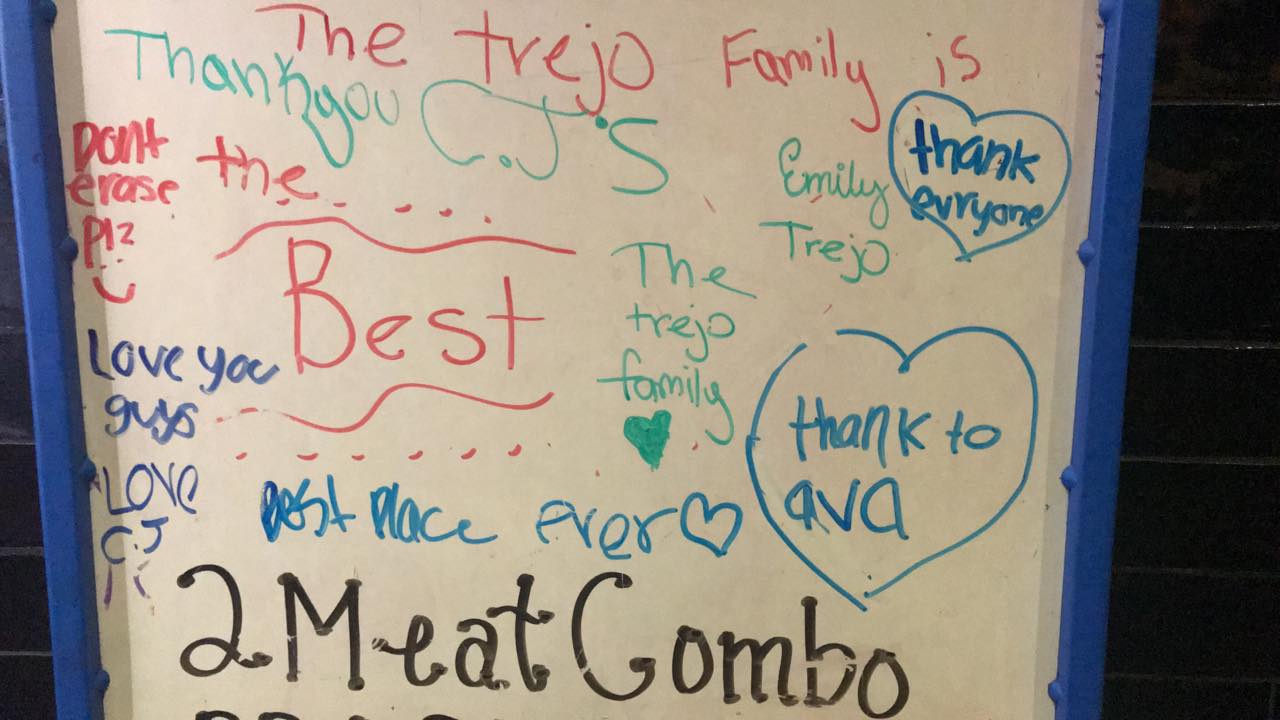 The trejo Family is
the
Best
Thankyou C.J.'S
Emily
Trejo
thank
evryone
Dont
erase
Plz
The
trejo
family
Love you
guys
LOVE
C.J
thank to
ava
Best Place ever
2 Meat Combo